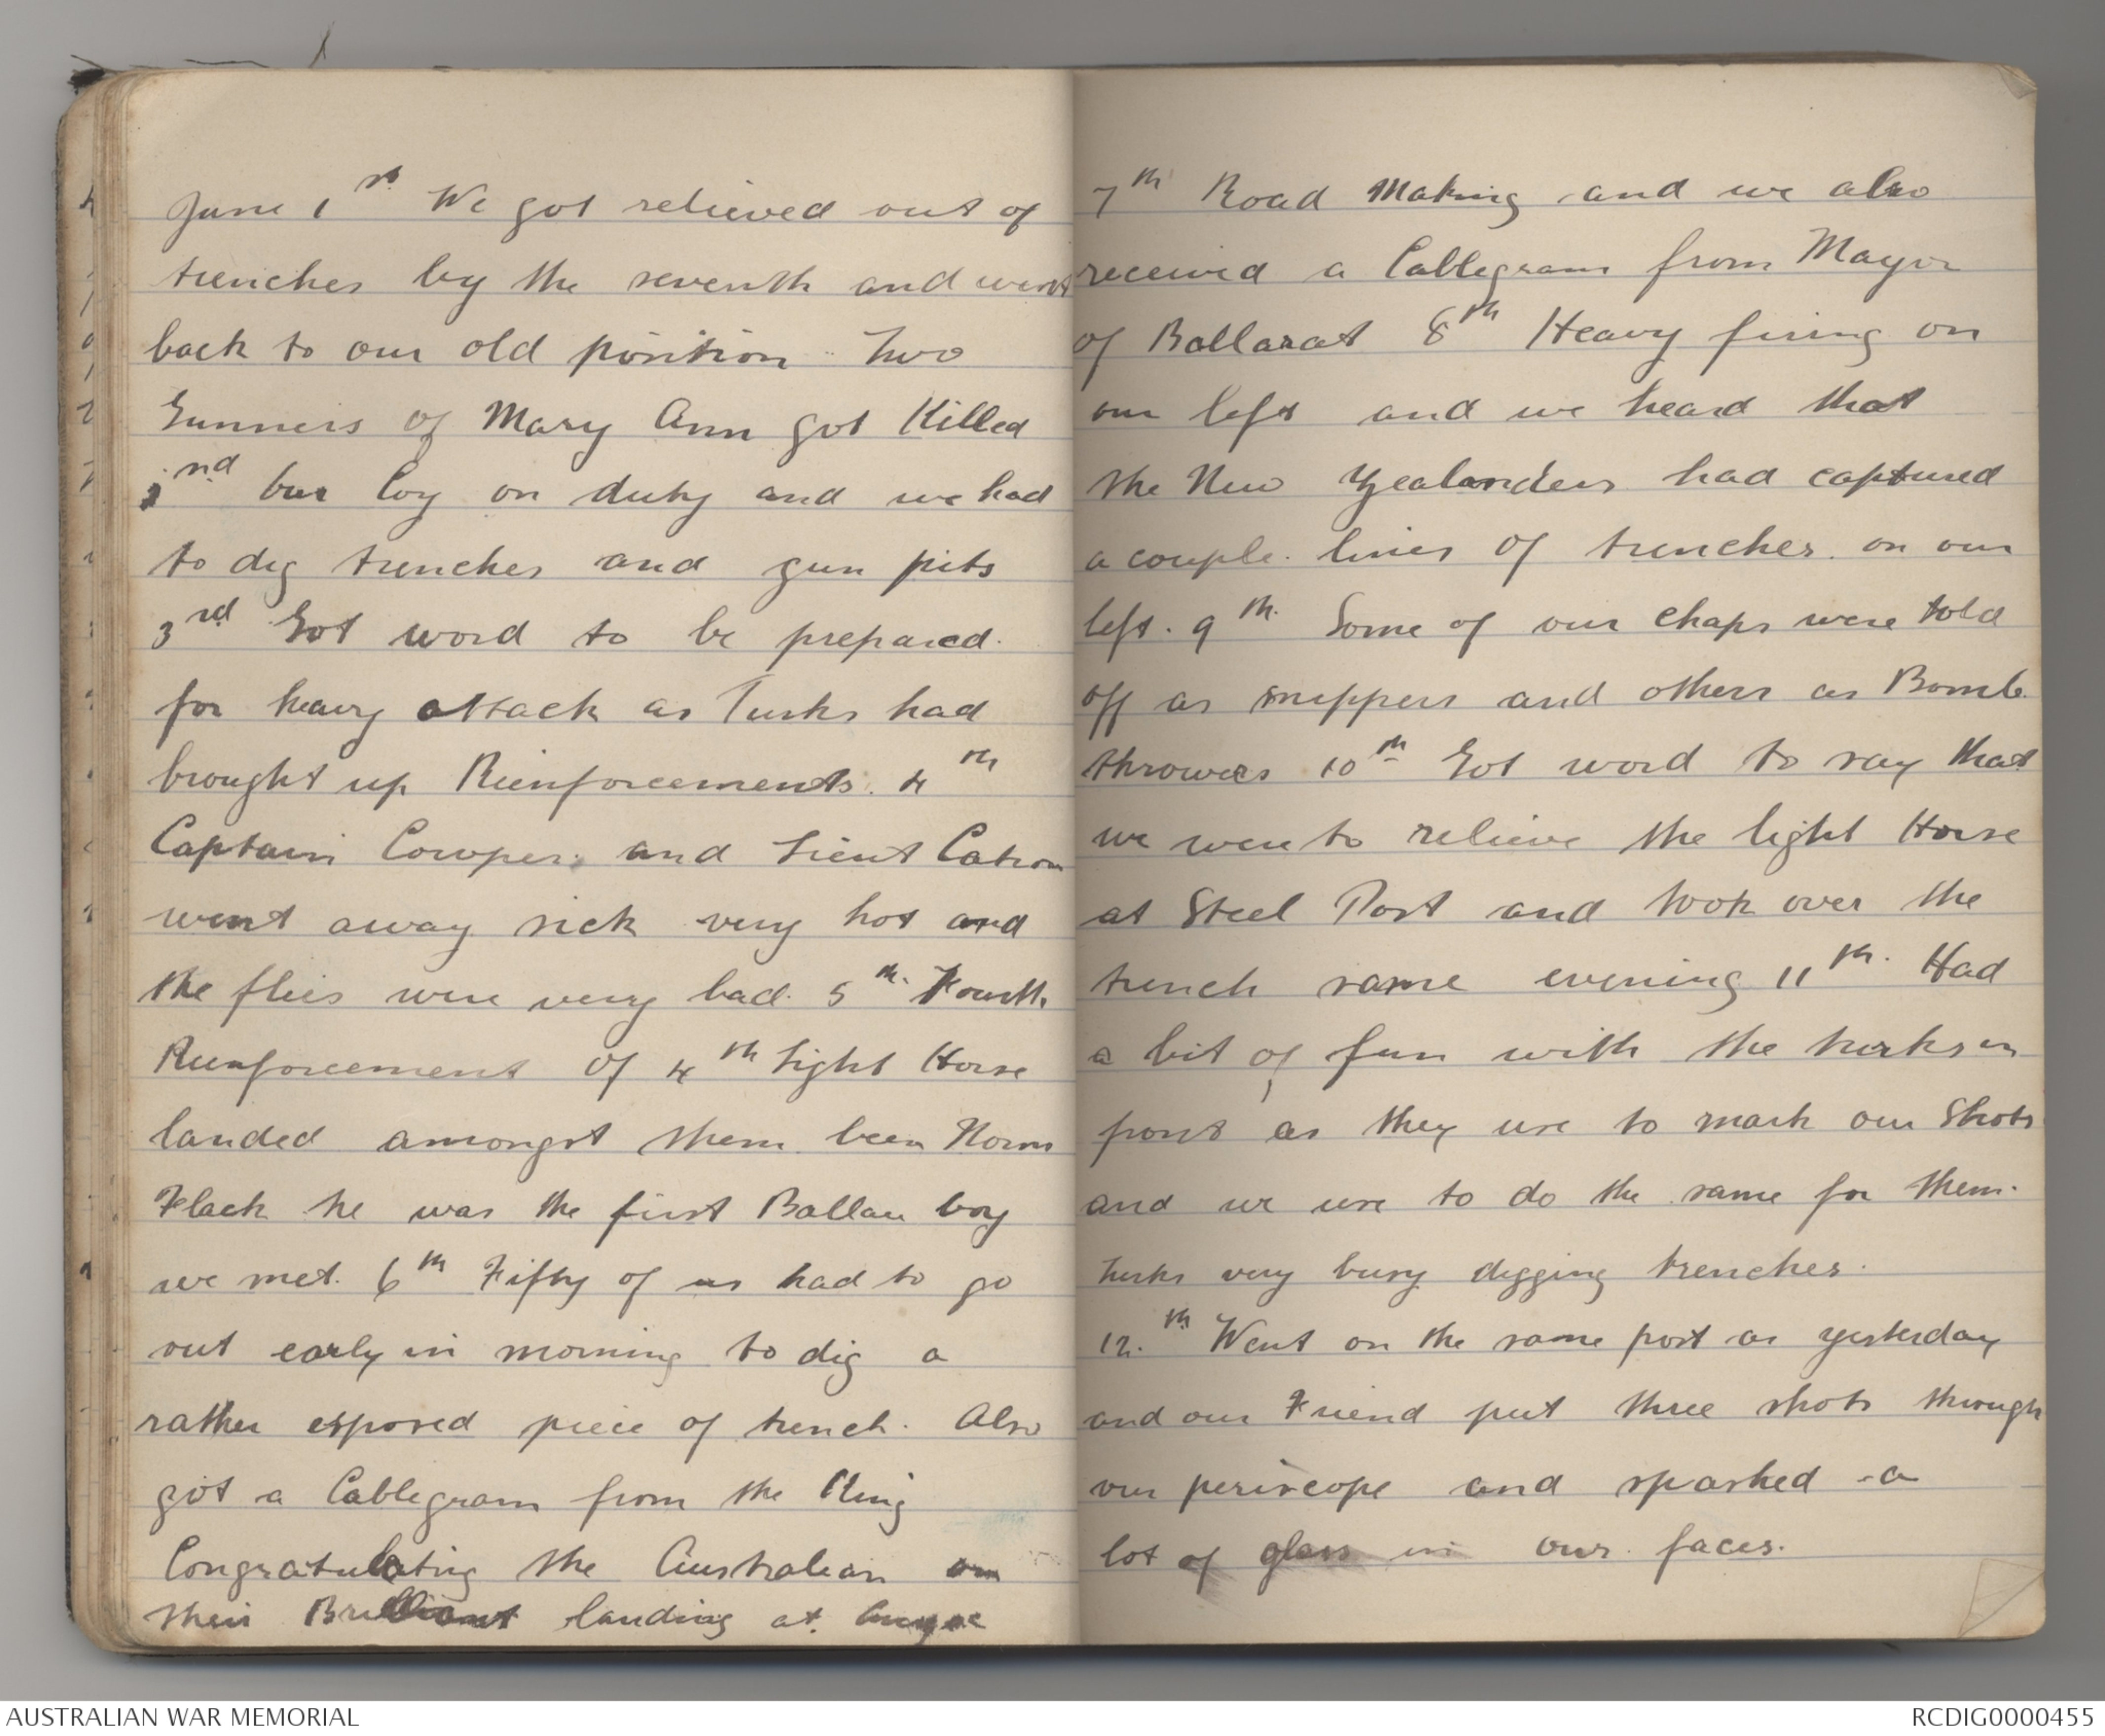 June 1st We got relieved out of
trenches by the seventh and went
back to our old position Two
Gunners of Mary Ann got Killed
2nd our Coy on duty and we had
to dig trenches and gun pits
3rd Got word to be prepared
for heavy attack as Turks had
brought up Rienforcements. 4th
Captain Cowper and Lieut Catron
went away sick very hot and
the flies were very bad. 5th Fourth
Reinforcement of 4th Light Horse
landed amongst them been Norm
Flack he was the first Ballan boy
we met. 6th Fifty of us had to go
out early in morning to dig a
rather exposed piece of trench. Also
got a Cablegram from the King
Congratulating the Australian on
their Brilliant landing at
7th Road Making and we also
received a Cablegram from Mayor
of Ballarat 8th Heavy firing on
our left and we heard that
the New Zealanders had captured
a couple lines of trenches on our
left. 9th Some of our chaps were told
off as snippers and others as Bomb
throwers 10th Got word to say that
we were to relieve the light Horse
at Steel Post and took over the
trench same evening 11th. Had
a bit of fun with the turks in
front as they use to mark our Shots
and we use to do the same for them.
Turks very busy digging trenches.
12.th Went on the same post as yesterday
and our Friend put three shots through
our periscope and sparked a
lot of glass in our faces.
AUSTRALIAN WAR MEMORIAL
RCDIG0000455